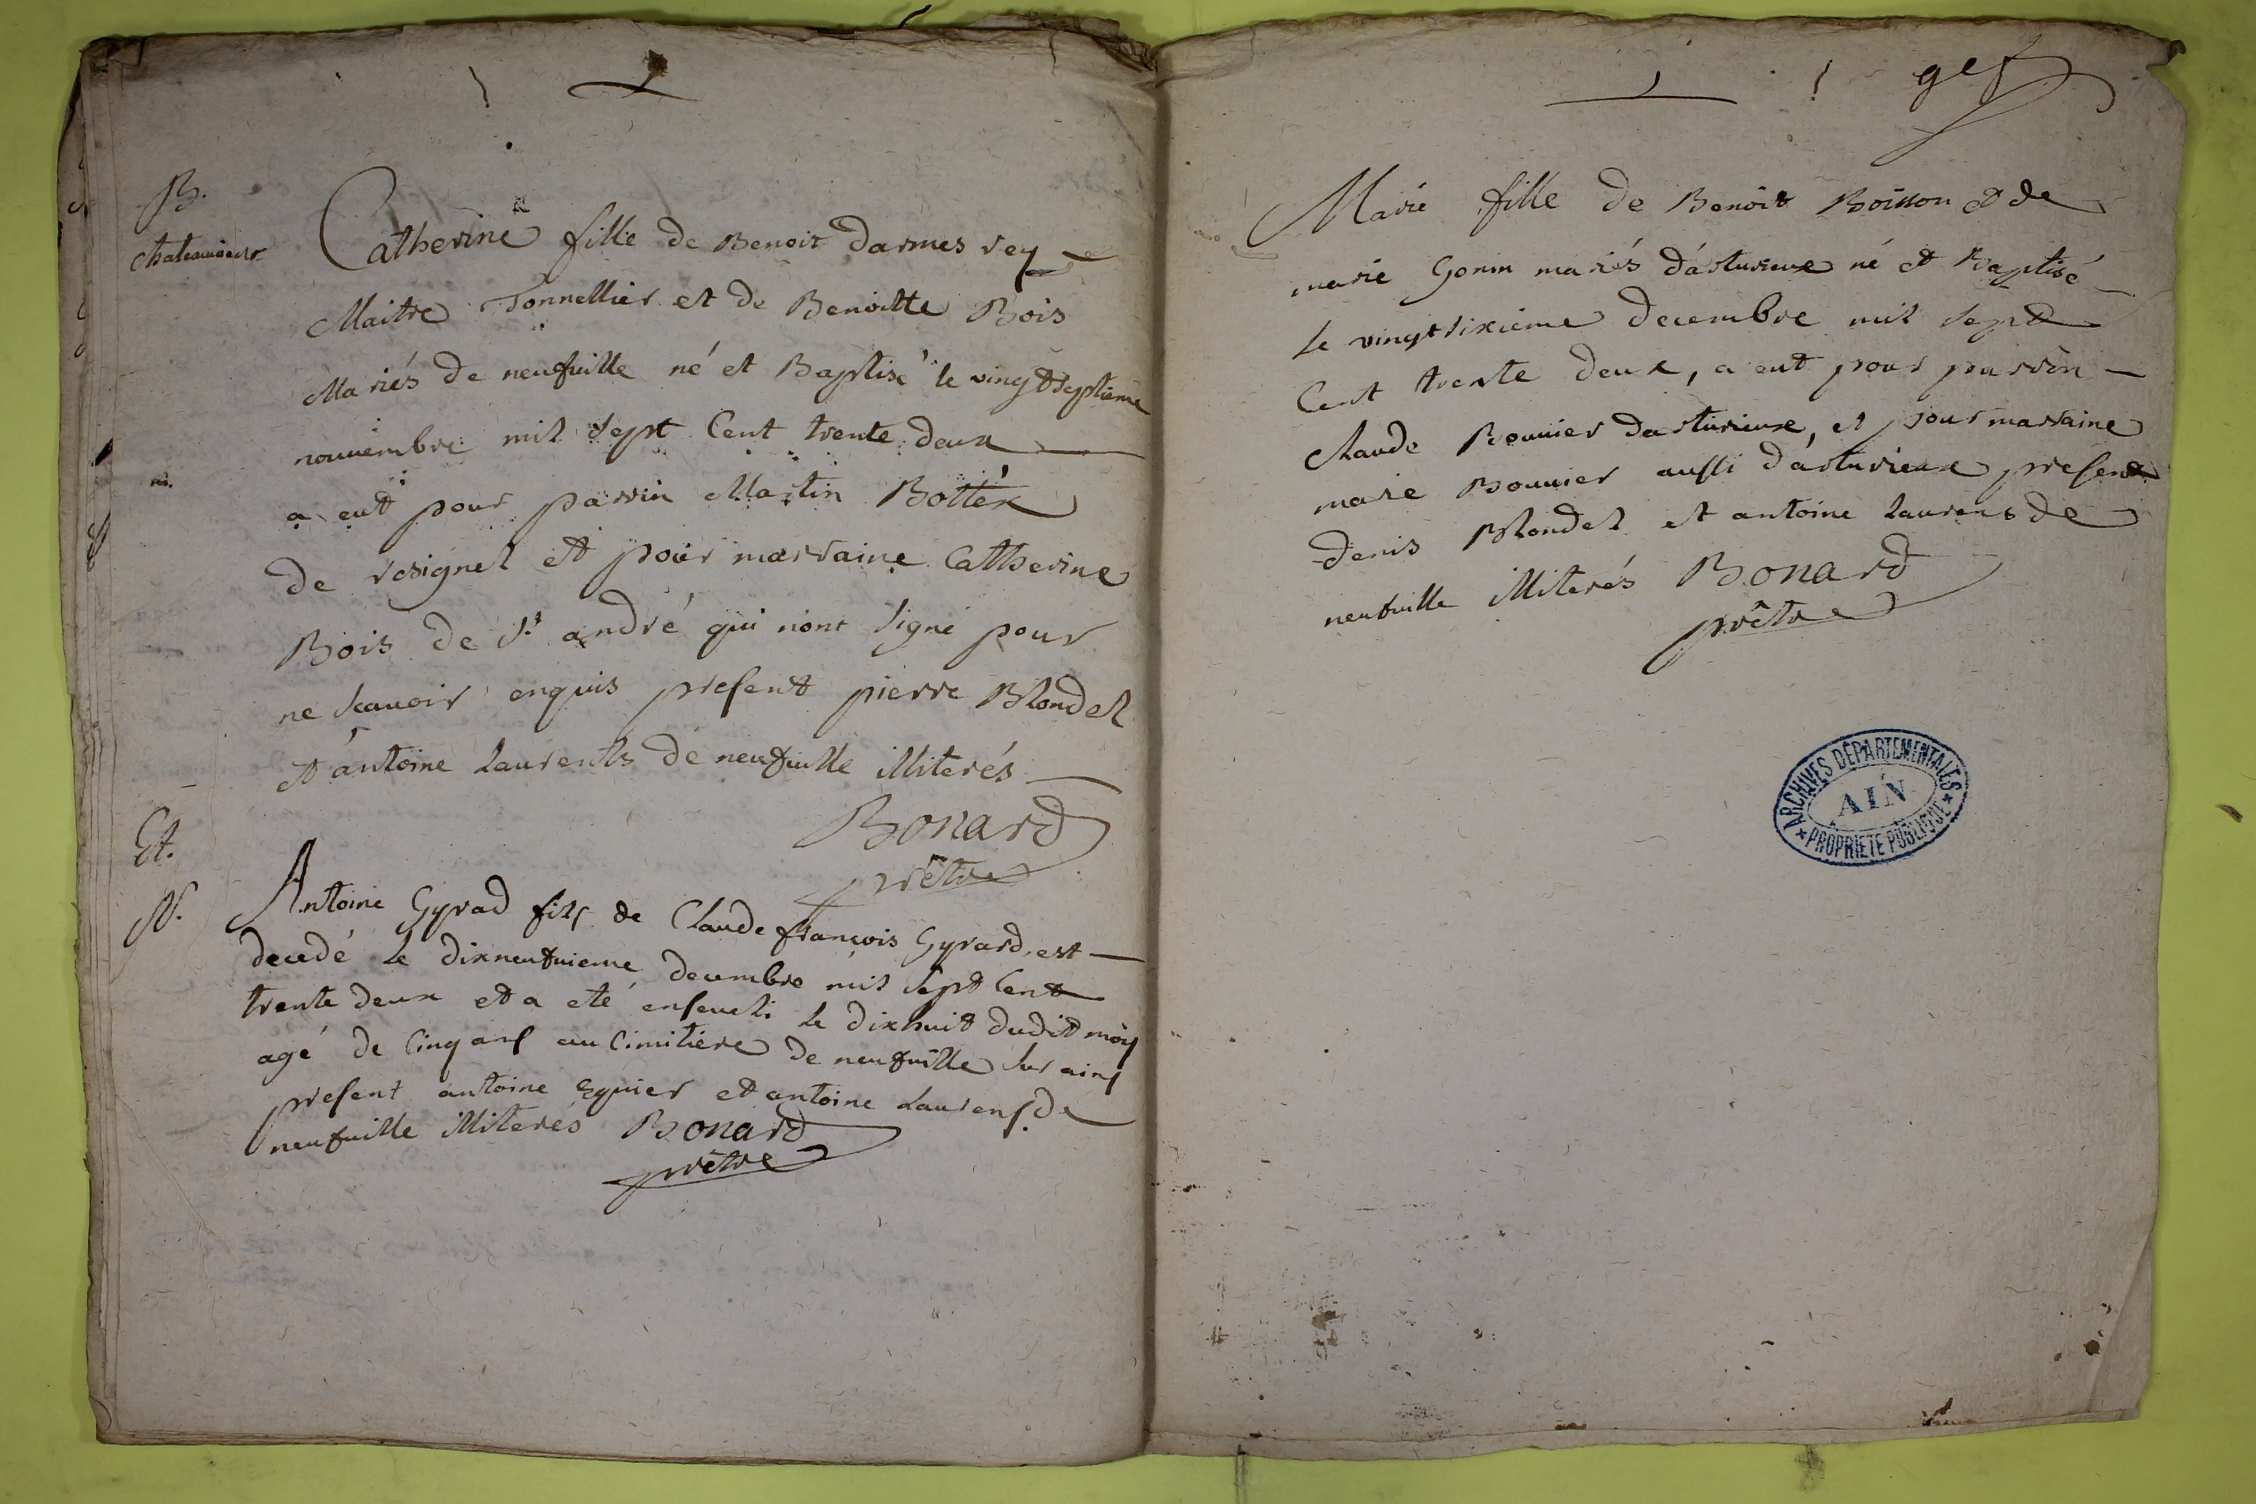 B.
Catherine fille de Benoit darmes rey
Maitre Tonnellier et de Benoitte Bois
Mariés de neufuille né et Baptisé le vingtseptieme
nouuembre mil sept Cent trente deux
a eut pour parrin Martin Bottex
de resignel et pour marraine Catherine
Bois de st andré qui nont signé pour
ne scauoir enquis present pierre Blondel
et antoine Laurents de neufuille illiterés
Bonard
prêtre
Et.
N.
Antoine Gyrad fils de Claude françois Gyrard est
decedé le dixneufuieme decembre mil sept Cent
trente deux et a eté enseueli le dixhuit dudit mois
agé de Cinq ans au Cimitiere de neufuille sur ains
present antoine Eguier et antoine Laurens de
neufuille illiterés Bonard
prêtre
Marie fille de Benoit Boisson et de
marie Gonin mariés d'arturieux né et Baptisé
le vingtsixiéme decembre mil sept
Cent trente deux, a eut pour parrin
Claude Bouuier darturieux, et pour marraine
marie Bouuier aussi d'arturieux present
denis Blondel et antoine Laurens de
neufuille illiterés Bonard
prêtre
ARCHIVES DÉPARTEMENTALES
AIN
PROPRIÉTÉ PUBLIQUE